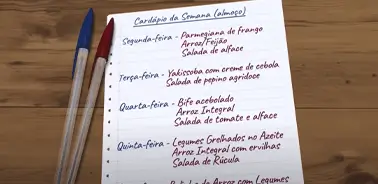 Cardápio da Semana (almoço)
Segunda-feira - Parmegiana de frango
Arroz/Feijão
Salada de alface
Terça-feira - Yakissoba com creme de cebola
Salada de pepino agridoce
Quarta-feira - Bife acebolado
Arroz Integral
Salada de tomate e alface
Quinta-feira - Legumes Grelhados no Azeite
Arroz Integral com ervilhas
Salada de Rúcula
de Arroz com Legumes